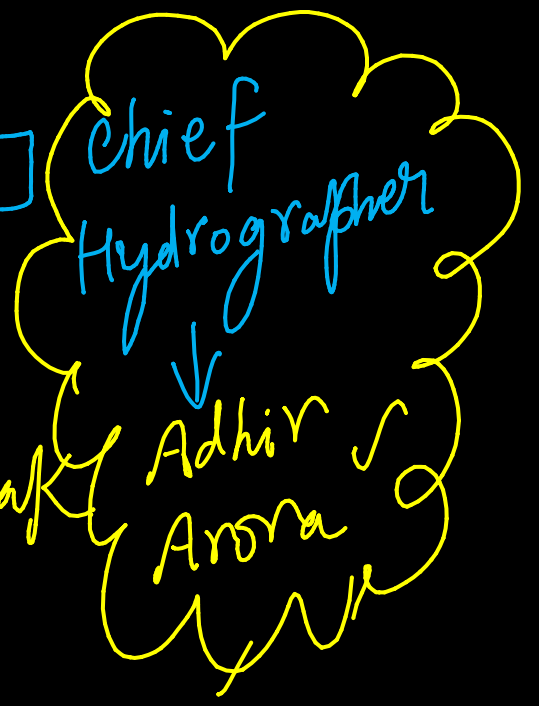 Chief
Hydrographer
↓
Adhir ✓
Arora